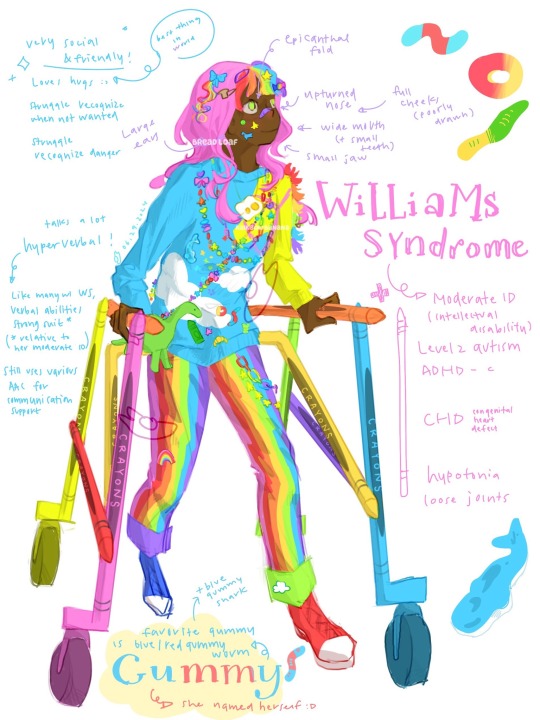 very social
& friendly!
Loves hugs :D
best thing
in
world
struggle recognize
when not wanted
struggle
recognize danger
Large
ears
epicanthal
fold
upturned
nose
full
cheeks
(poorly
drawn)
wide mouth
(+ small
teeth)
small jaw
BREADLOAF
Williams
Syndrome
talks a lot
hyperverbal!
Like many w WS,
verbal abilities
strong suit*
(* relative to
her moderate ID)
Still uses various
AAC for
communication
support
+
Moderate ID
(intellectual
disability)
Level 2 autism
ADHD - C
CHD congenital
heart
defect
hypotonia
loose joints
CRAYONS
CRAYONS
CRAYONS
CRAYONS
CRAYONS
+ blue
gummy
shark
favorite gummy
is blue/red gummy
worm
Gummy
she named herself :D